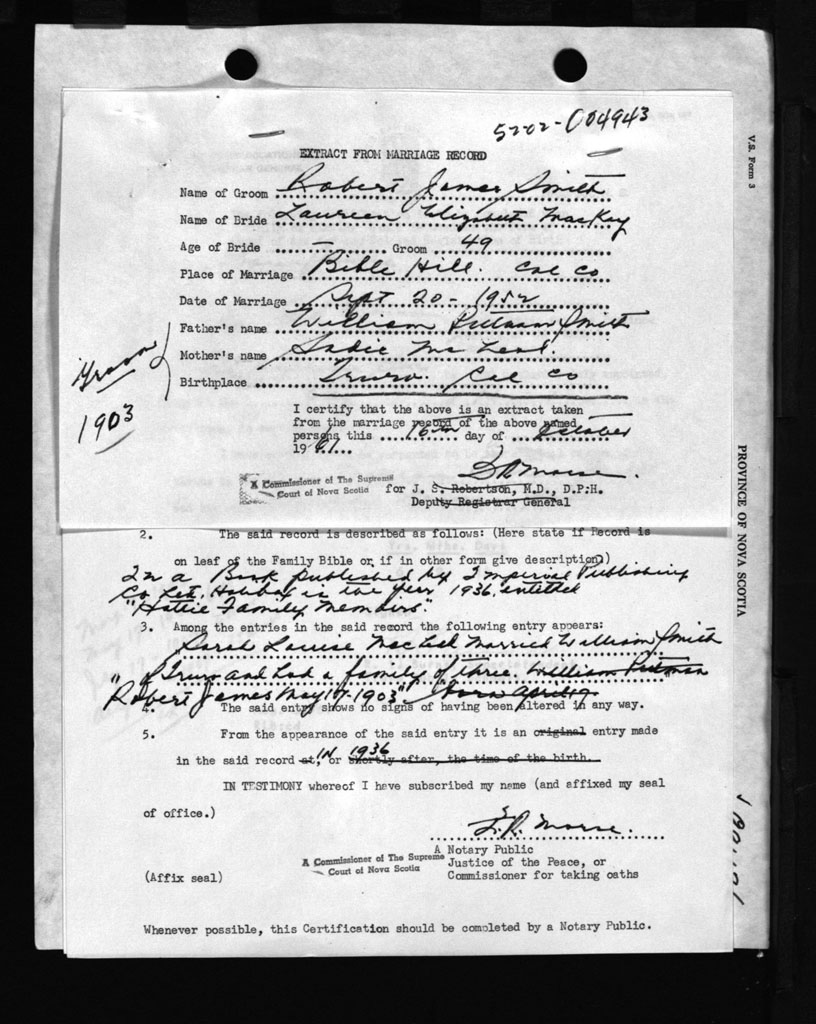 5202-004943
EXTRACT FROM MARRIAGE RECORD
Name of Groom Robert James Smith
Name of Bride Laureen Elizabeth MacKay
Age of Bride — Groom 49
Place of Marriage Bible Hill. Col Co
Date of Marriage Sept 20 - 1952
Father's name William Putnam Smith
Mother's name Sadie McLeod.
Birthplace Truro. Col Co
Groom
1903
I certify that the above is an extract taken
from the marriage record of the above named
persons this 16th day of October
1961
Morse.
A Commissioner of The Supreme
Court of Nova Scotia
for J. S. Robertson, M.D., D.P.H.
Deputy Registrar General
2. The said record is described as follows: (Here state if Record is
on leaf of the Family Bible or, if in other form give description))
In a Book published by Imperial Publishing
Co Ltd. Halifax in the year 1936 entitled
" Family Memoirs."
3. Among the entries in the said record the following entry appears:
Sarah Louise MacLeod Married William Smith
" of Truro and had a family of three. William Putnam
Robert James May 17-1903" Born April 19
4. The said entry shows no signs of having been altered in any way.
5. From the appearance of the said entry it is an original entry made
in the said record at, IN or 1936 shortly after, the time of the birth.
IN TESTIMONY whereof I have subscribed my name (and affixed my seal
of office.)
Morse.
A Notary Public
Justice of the Peace, or
Commissioner for taking oaths
A Commissioner of The Supreme
Court of Nova Scotia
(Affix seal)
Whenever possible, this Certification should be completed by a Notary Public.
V.S. Form 3
PROVINCE OF NOVA SCOTIA